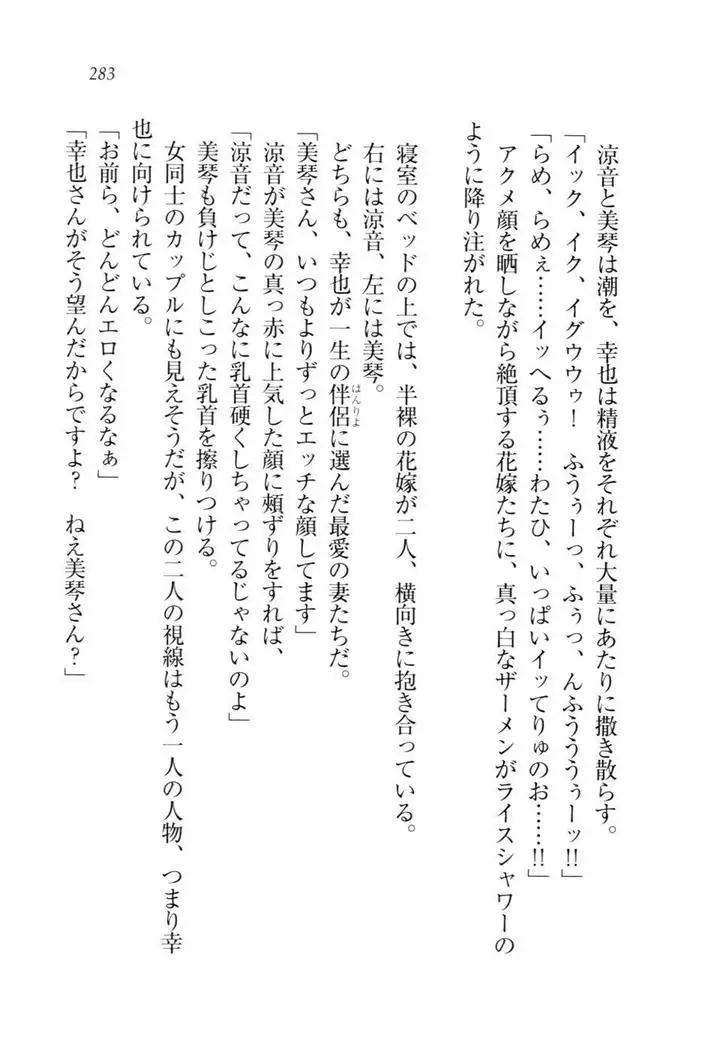 283
涼音と美琴は潮を、幸也は精液をそれぞれ大量にあたりに撒き散らす。
「イック、イク、イグウウゥ！　ふうぅーっ、ふぅっ、んふうううぅーッ!!」
「らめ、らめぇ……イッへるぅ……わたひ、いっぱいイッてりゅのお……!!」
アクメ顔を晒しながら絶頂する花嫁たちに、真っ白なザーメンがライスシャワーの
ように降り注がれた。
寝室のベッドの上では、半裸の花嫁が二人、横向きに抱き合っている。
右には涼音、左には美琴。
どちらも、幸也が一生の伴侶はんりよに選んだ最愛の妻たちだ。
「美琴さん、いつもよりずっとエッチな顔してます」
涼音が美琴の真っ赤に上気した顔に頬ずりをすれば、
「涼音だって、こんなに乳首硬くしちゃってるじゃないのよ」
美琴も負けじとしこった乳首を擦りつける。
女同士のカップルにも見えそうだが、この二人の視線はもう一人の人物、つまり幸
也に向けられている。
「お前ら、どんどんエロくなるなぁ」
「幸也さんがそう望んだからですよ？　ねえ美琴さん？」